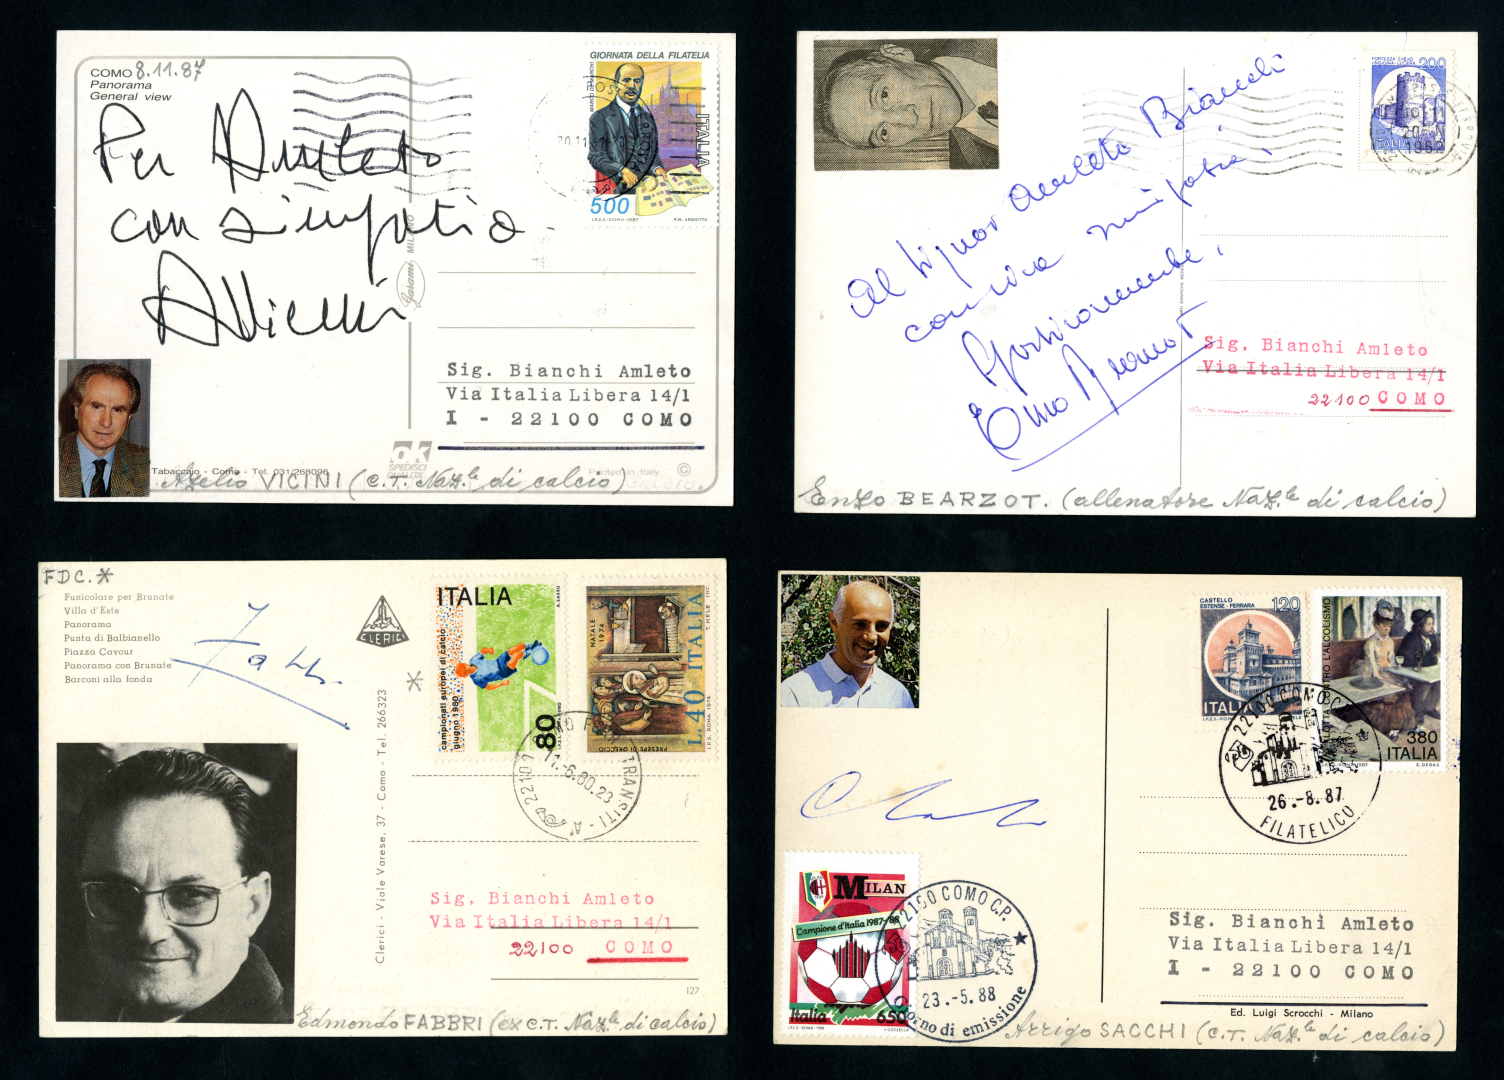 COMO 8.11.87
Panorama
General view
Per Amleto
con simpatia
AVicini
GIORNATA DELLA FILATELIA
MARCO DE MARCHI
ITALIA
500
I.P.Z.S.-ROMA-1987
P.N. ARGHITTU
Garami MILANO
Sig. Bianchi Amleto
Via Italia Libera 14/1
I - 22100 COMO
ok
SPEDISCI
QUALITA'
Tabaccaio - Como - Tel. 031/268096
Printed in Italy ©
Azelio VICINI (C.T. Naz.le di calcio)
200
ITALIA
1982
Al Signor Amleto Bianchi
con viva simpatia.
Affettuosamente,
Enzo Bearzot
Sig. Bianchi Amleto
Via Italia Libera 14/1
22100 COMO
Enzo BEARZOT. (allenatore Naz.le di calcio)
FDC. *
Funicolare per Brunate
Villa d'Este
Panorama
Punta di Balbianello
Piazza Cavour
Panorama con Brunate
Barconi alla fonda
CLERICI
Fabbri
*
Clerici - Viale Varese, 37 - Como - Tel. 266323
ITALIA
campionati europei di calcio
giugno 1980
80
A. SASSU
NATALE 1974
PRESEPE DI GRECCIO
L.40 ITALIA
I.P.S. ROMA 1974
T. MELE INC.
22100 COMO FERR. TRANSITI - A
11.-6.80.23
Sig. Bianchi Amleto
Via Italia Libera 14/1
22100 COMO
127
Edmondo FABBRI (ex C.T. Naz.le di calcio)
CASTELLO
ESTENSE - FERRARA
120
ITALIA
380
ITALIA
I.P.Z.S.-ROMA-1987
E. DEGAS
22100 COMO C.P.
26.-8.87
FILATELICO
MILAN
Campione d'Italia 1987-88
Italia 650
I.P.Z.S.-ROMA-1988
22100 COMO C.P.
23.-5.88
Giorno di emissione
Sig. Bianchi Amleto
Via Italia Libera 14/1
I - 22100 COMO
Ed. Luigi Scrocchi - Milano
Arrigo SACCHI (C.T. Naz.le di calcio)